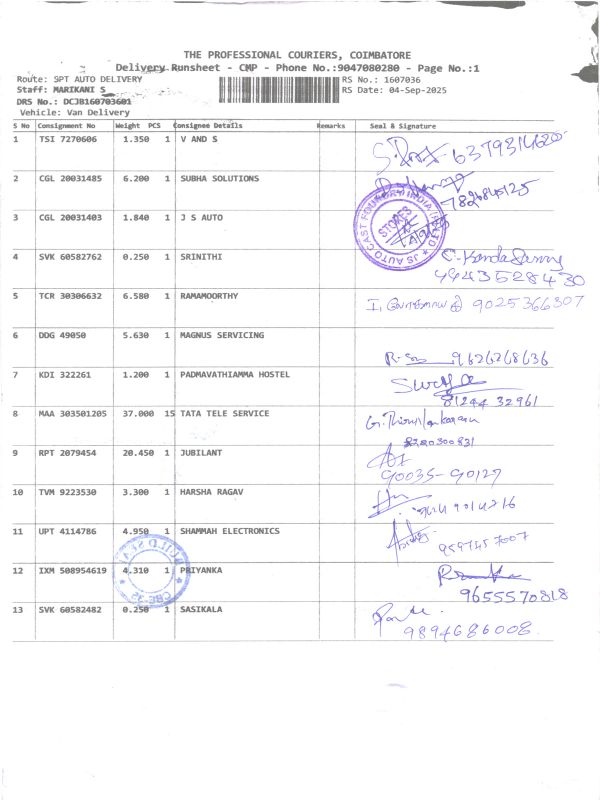 THE PROFESSIONAL COURIERS, COIMBATORE
Delivery Runsheet - CMP - Phone No.:9047080280 - Page No.:1
Route: SPT AUTO DELIVERY
RS No.: 1607036
Staff: MARIKANI S
RS Date: 04-Sep-2025
DRS No.: DCJB160703601
Vehicle: Van Delivery
S No Consignment No Weight PCS Consignee Details Remarks Seal & Signature
1 TSI 7270606 1.350 1 V AND S 6379314620
2 CGL 20031485 6.200 1 SUBHA SOLUTIONS 7826845125
3 CGL 20031403 1.840 1 J S AUTO
JS AUTO CAST FOUNDRY INDIA (P) LTD
STORES
4 SVK 60582762 0.250 1 SRINITHI
9443528430
5 TCR 30306632 6.580 1 RAMAMOORTHY 9025366307
6 DDG 49050 5.630 1 MAGNUS SERVICING
9626268636
7 KDI 322261 1.200 1 PADMAVATHIAMMA HOSTEL Surya
81244 32961
8 MAA 303501205 37.000 15 TATA TELE SERVICE
8220300831
9 RPT 2079454 20.450 1 JUBILANT
90035-90127
10 TVM 9223530 3.300 1 HARSHA RAGAV
11 UPT 4114786 4.950 1 SHAMMAH ELECTRONICS
9597457007
12 IXM 508954619 4.310 1 PRIYANKA
9655570818
CBE-35
13 SVK 60582482 0.250 1 SASIKALA
9894686008